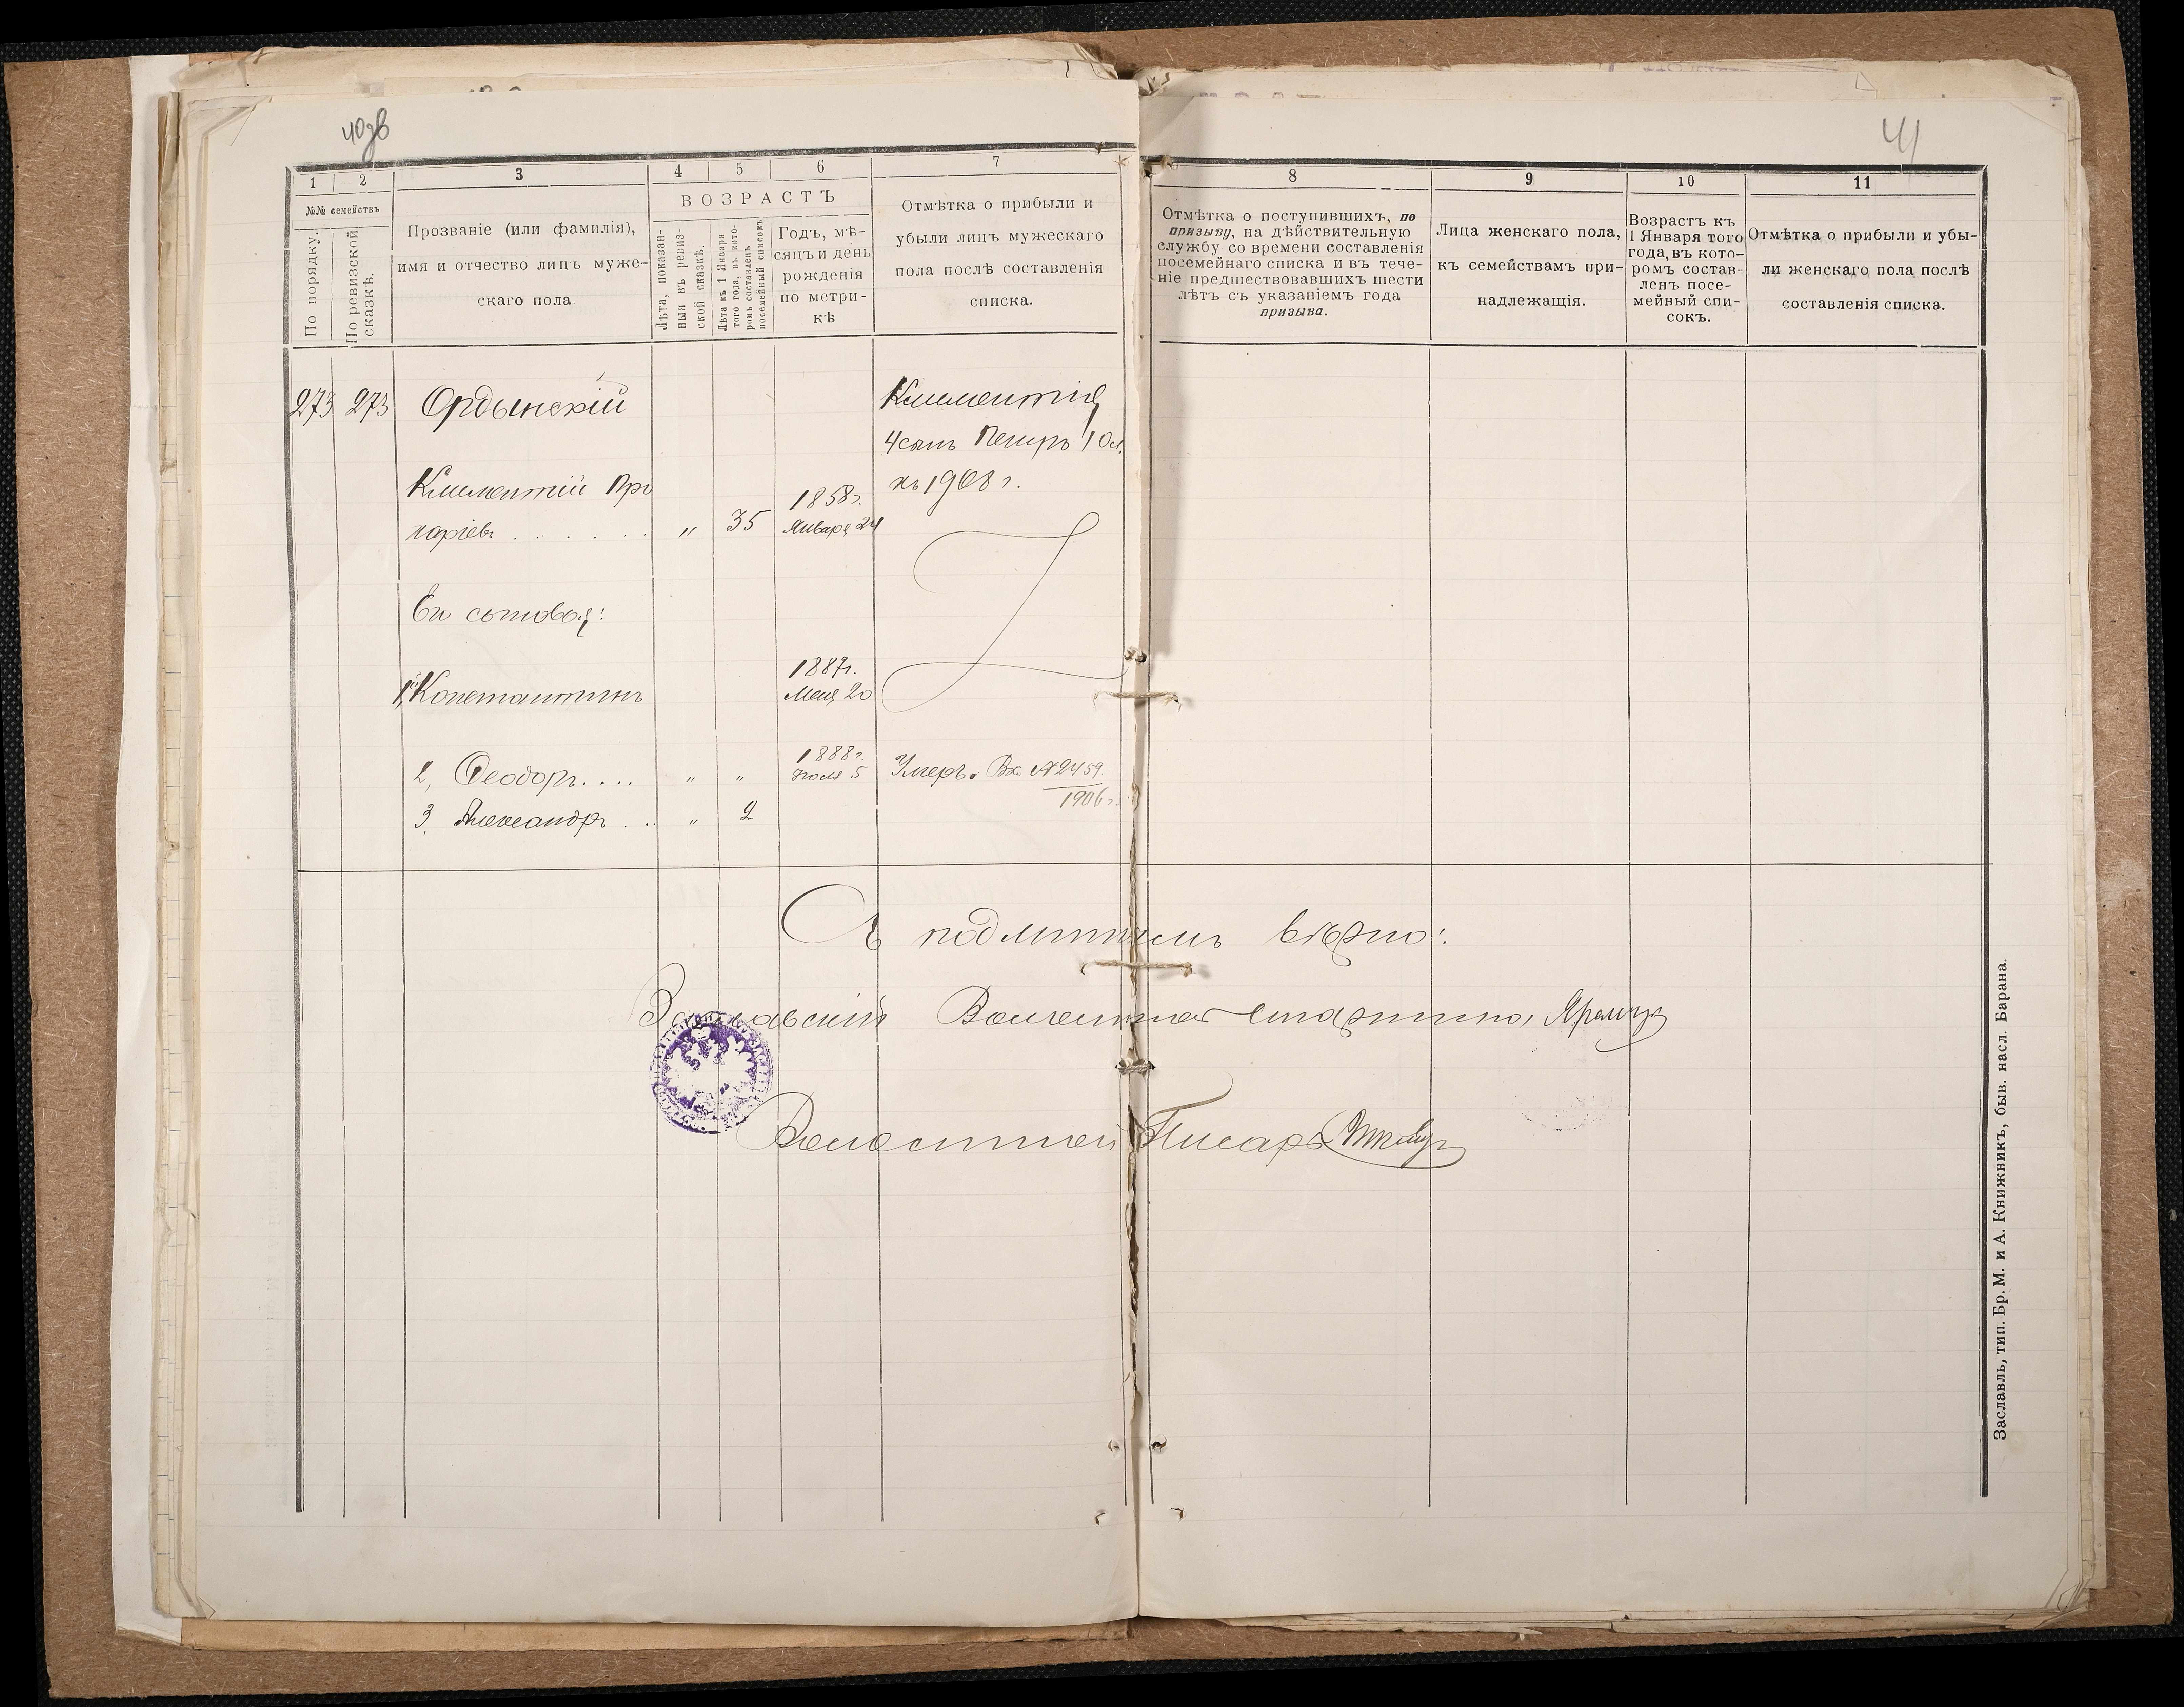 40зв
41
1
2
3
4
5
6
7
8
9
10
11
№№ семействъ
По порядку.
По ревизской
сказкѣ.
Прозваніе (или фамилія),
имя и отчество лицъ муже-
скаго пола.
ВОЗРАСТЪ
Лѣта, показан-
ныя въ ревиз-
ской сказкѣ.
Лѣта къ 1 Января
того года, въ кото-
ромъ составленъ
посемейный списокъ
Годъ, мѣ-
сяцъ и день
рожденія
по метри-
кѣ
Отмѣтка о прибыли и
убыли лицъ мужескаго
пола послѣ составленія
списка.
Отмѣтка о поступившихъ, по
призыву, на дѣйствительную
службу со времени составленія
посемейнаго списка и въ тече-
ніе предшествовавшихъ шести
лѣтъ съ указаніемъ года
призыва.
Лица женскаго пола,
къ семействамъ при-
надлежащія.
Возрастъ къ
1 Января того
года, въ кото-
ромъ состав-
ленъ посе-
мейный спи-
сокъ.
Отмѣтка о прибыли и убы-
ли женскаго пола послѣ
составленія списка.
273 273 Ордынскій
Климентія
4 сынъ Петръ 10 л.
къ 1908 г.
Климентій
" 35
1858 г.
Января 24
Его сыновья:
1, Константинъ
1887 г.
Мая 20
2, Феодоръ.... " "
1888 г.
Іюля 5
Умеръ. Вх. №2459
1906 г.
3, Александръ... " 2
Съ подлиннымъ вѣрно:
Заславскій Волостной Старшина
Волостной Писарь
Заславль, тип. Бр. М. и А. Книжникъ, быв. насл. Барана.